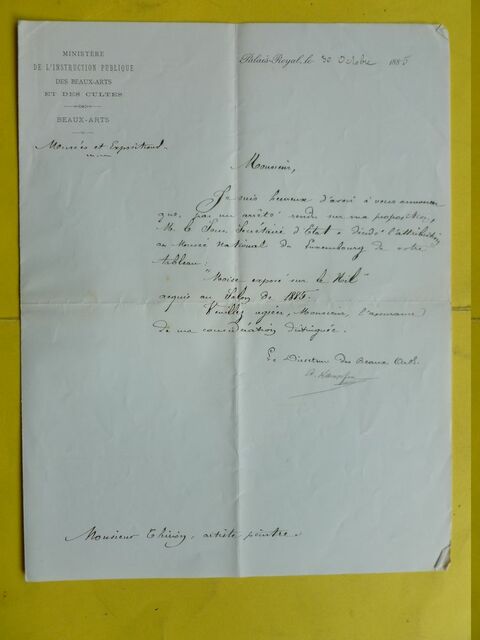 MINISTÈRE
DE L'INSTRUCTION PUBLIQUE
DES BEAUX-ARTS
ET DES CULTES
BEAUX-ARTS
Musées et Expositions.
Palais-Royal, le 30 Octobre 1885
Monsieur,
Je suis heureux d'avoir à vous annoncer
que, par un arrêté rendu sur ma proposition,
M. le Sous Secrétaire d'Etat a décidé l'attribution
au Musée National du Luxembourg de votre
tableau:
"Moïse exposé sur le Nil"
acquis au Salon de 1885.
Veuillez agréer, Monsieur, l'assurance
de ma considération distinguée.
Le Directeur des Beaux Arts.
Monsieur Thirion, artiste peintre.